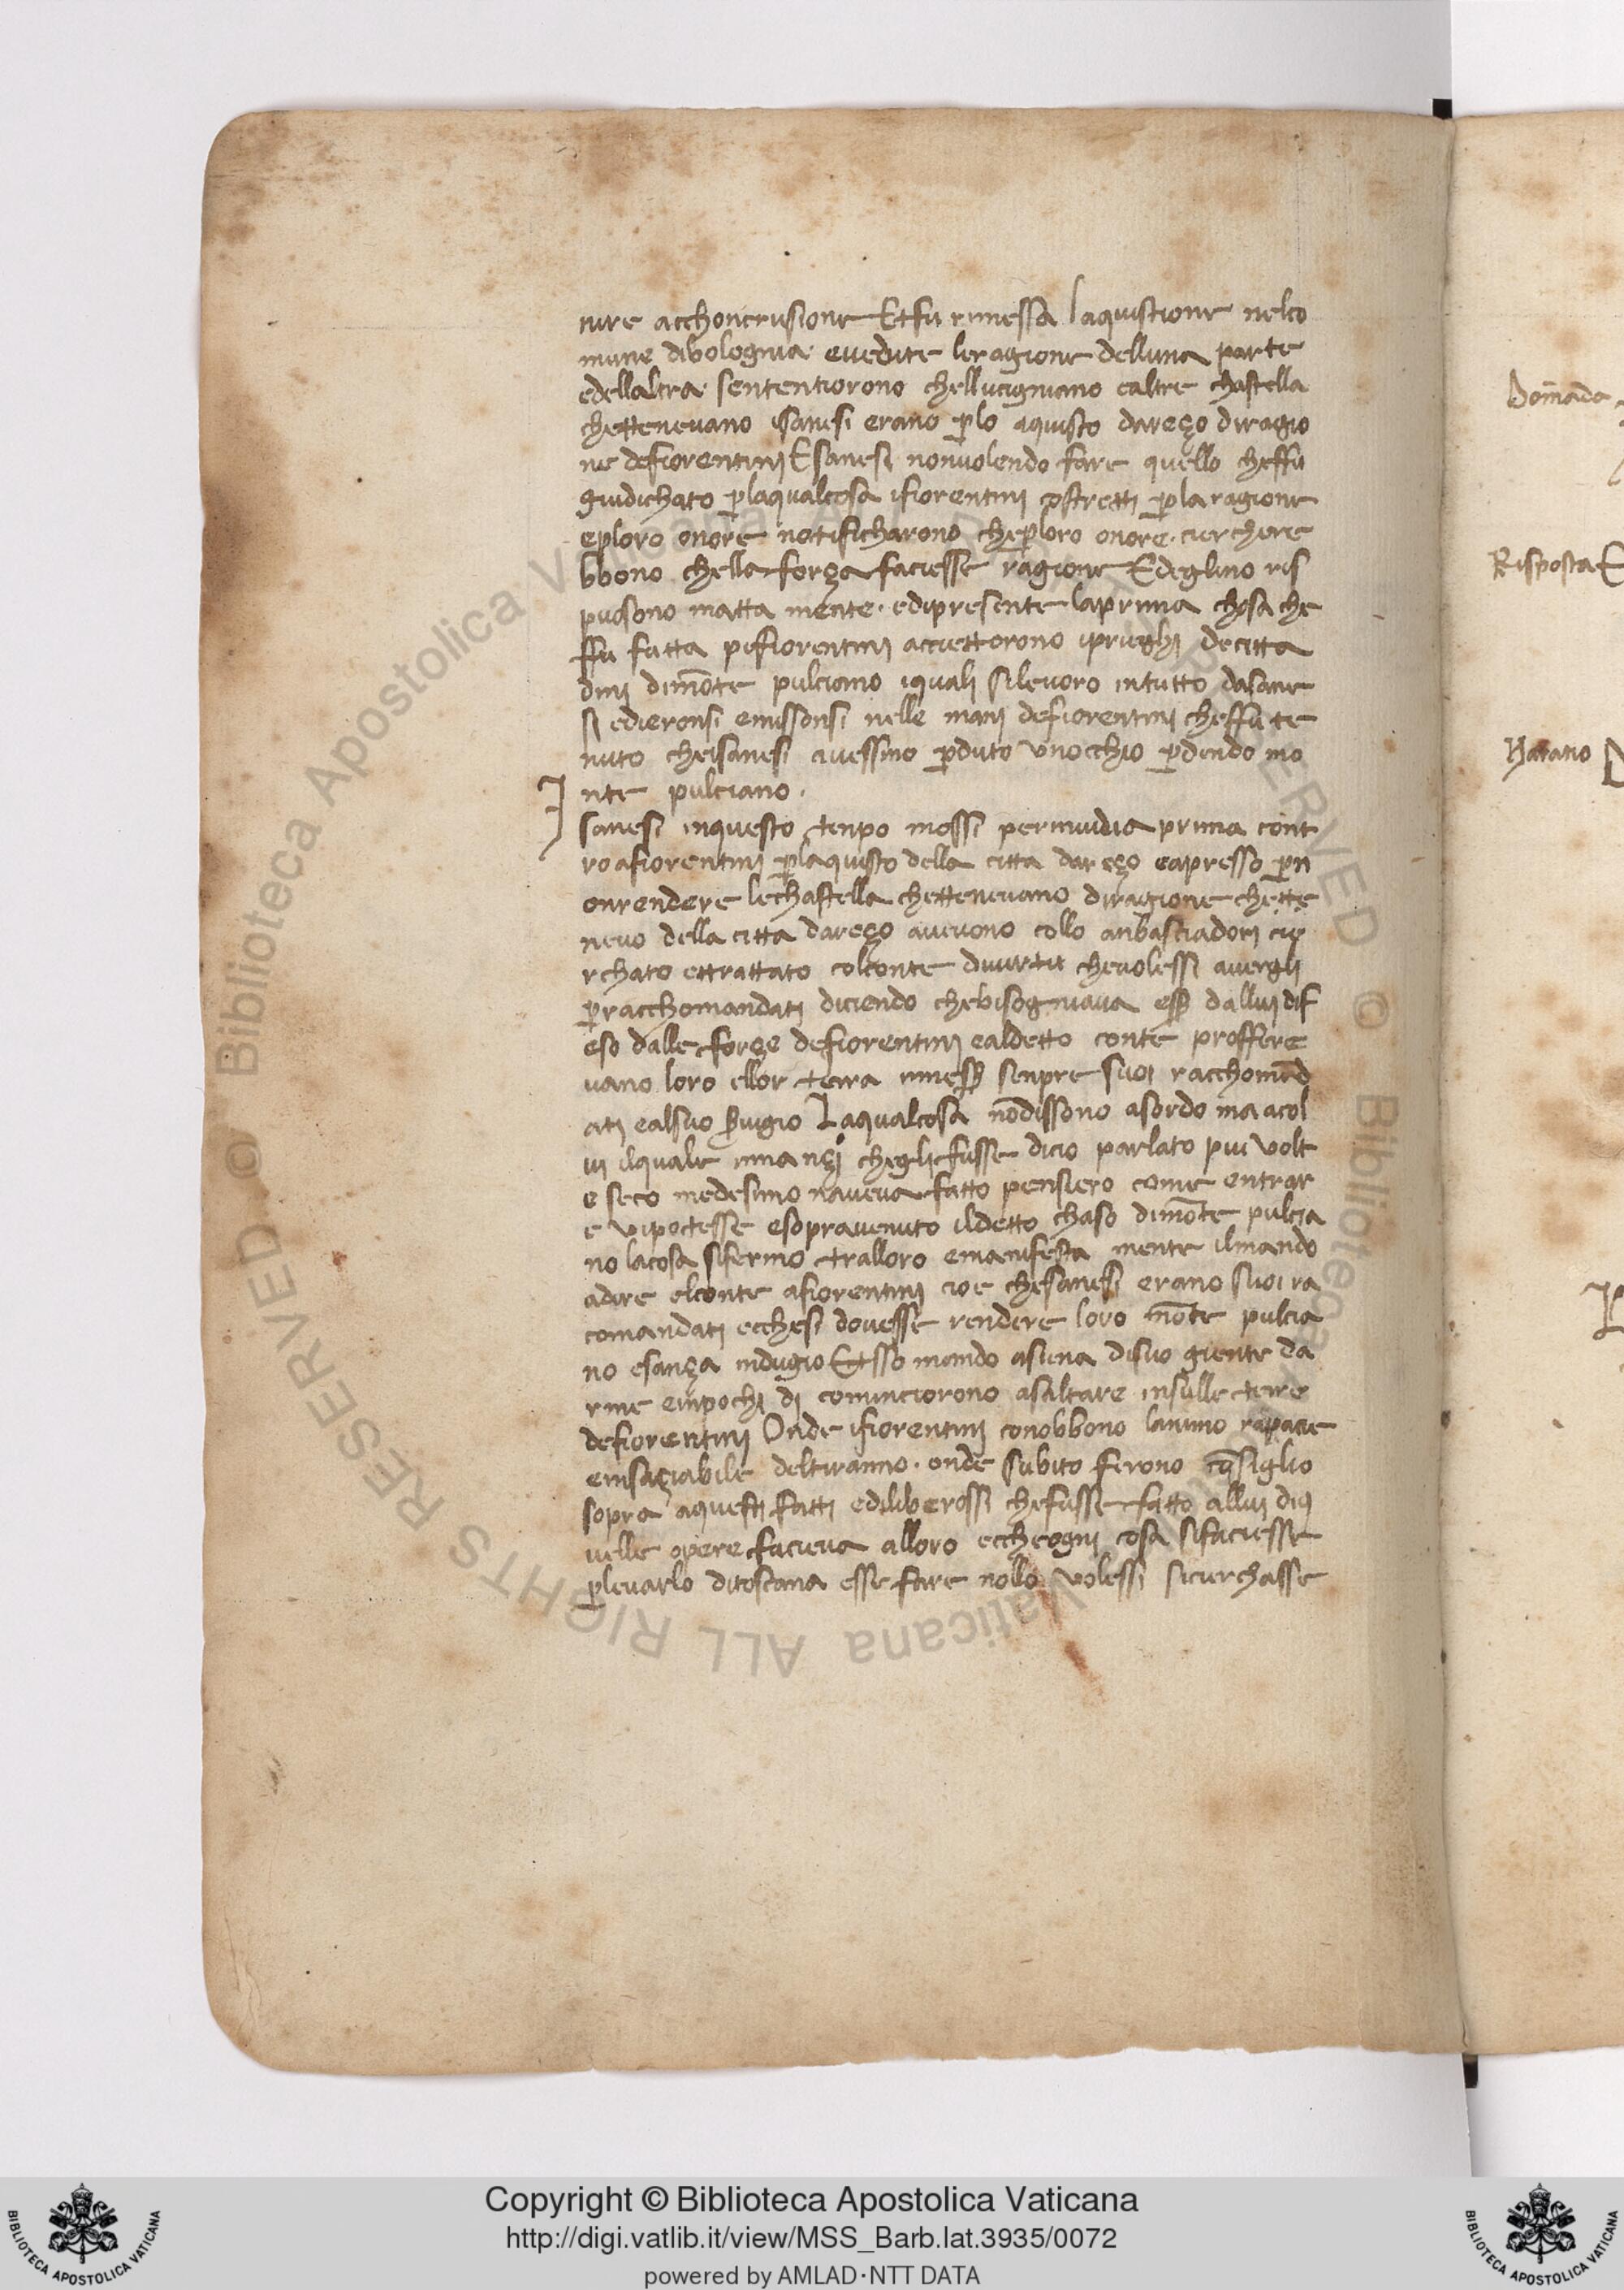 nire acchoncrusione Et fu rimessa laquistione nelco
mune dibolognia· evedute leragione delluna parte
edellaltra· sententiorono chellucigniano ealtre chastella
chettenevano isanesi erano p̱lo aquisto dareço diragio
ne defiorentinj E sanesi nonvolendo fare quello cheffu
giudichato p̱laqualcosa ifiorentinj costretti p̱la ragione
ep̱loro onore notificharono chep̱loro onore· cierchere
bbono chella força faciesse ragione Edeglino ris
puosono matta mente· edipresente laprima chosa che
ffu fatta p̱ifiorentinj acciettorono iprieghj decitta
dinj dimōte pulciano iqualj silevoro intutto dasane
sj edieronsi emissonsi nelle manj defiorentinj cheffu te
nuto cheisanesi avessino p̱duto unocchio p̱dendo mo
nte pulciano·
I
sanesi inquesto tenpo mossi perinvidia prima cont
ro afiorentinj p̱laquisto della citta dareço eapresso p̱n
onrendere lechastella chettenevano diragione chette
nevo della citta dareço avevono collo anbasciadorj cie
rchato ettrattato colconte divirtu chevolessi avergli
p̱racchomandatj diciendo chebisogniava ess̱ dalluj dif
eso dalle forçe defiorentinj ealdetto conte proffere
vano loro ellor terra iness̱ senpre suoi racchomād
atj ealsuo s̱vigio Laqualcosa nōdissono asordo ma acol
ui ilquale innançj cheglifusse dicio parlato piu volt
e seco medesimo naveva fatto pensiero come entrar
e vipotesse esopravenuto ildetto chaso dimōte pulcia
no lacosa sifermo tralloro emanifesta mente ilmando
adire elconte afiorentinj cioe chesanesi erano suoi ra
comandatj ecchesi dovesse rendere loro mōte pulcia
no esança indugio Et sso mando asiena disuo giente da
rme einpochj dj cominciorono asaltare insulle terre
defiorentinj Onde ifiorentinj conobbono lanimo rapacie
einsaçiabile deltiranno· onde subito ferono cōsiglio
sopra aquestj fatti ediliberossi chefusse fatto alluj diq
uelle opere facieva alloro eccheognj cosa sifaciesse
p̱levarlo ditoscana esse fare nollo volessi sicierchasse
Domādo
Risposta E
Natatio
Copyright © Biblioteca Apostolica Vaticana
http://digi.vatlib.it/view/MSS_Barb.lat.3935/0072
powered by AMLAD·NTT DATA
BIBLIOTECA APOSTOLICA VATICANA
BIBLIOTECA APOSTOLICA VATICANA
© Biblioteca Apostolica Vaticana ALL RIGHTS RESERVED